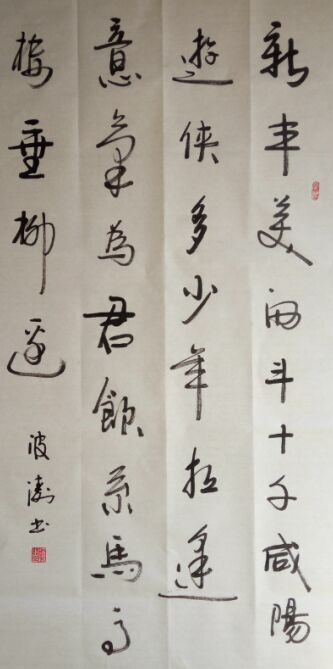 新丰美酒斗十千咸陽
遊侠多少年相逢
意氣為君飲系馬高
楼垂柳邊
波濤书